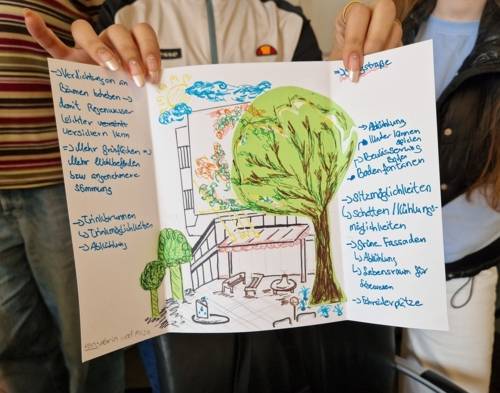 →Verdichtungen an
Bäumen beheben →
damit Regenwasser
leichter
versickern kann
⇒ Mehr Grünflächen ⇒
Mehr Wohlbefinden
bzw angenehmere
Stimmung
→Trinkbrunnen
↳Trinkmöglichkeiten
→Abkühlung
ellesse
→Abkühlung
Kinder können
spielen
Bodenfontänen
→Sitzmöglichkeiten
↳Schatten/Kühlungs-
möglichkeiten
→Grüne Fassaden
↳Abkühlung
↳Lebensraum für